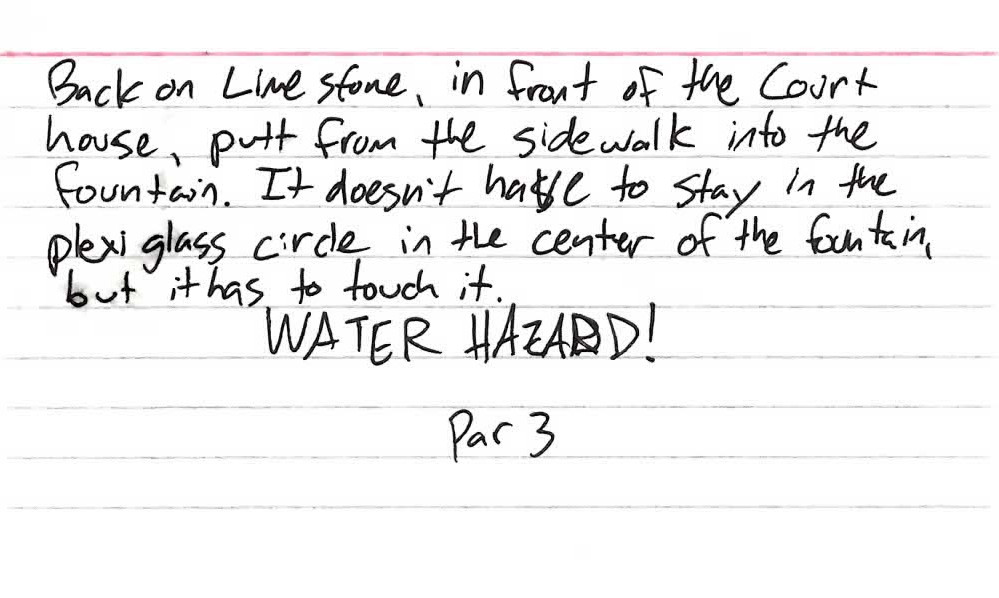 Back on Limestone, in front of the Court
house, putt from the sidewalk into the
fountain. It doesn't have to stay in the
plexi glass circle in the center of the fountain,
but it has to touch it.
WATER HAZARD!
Par 3